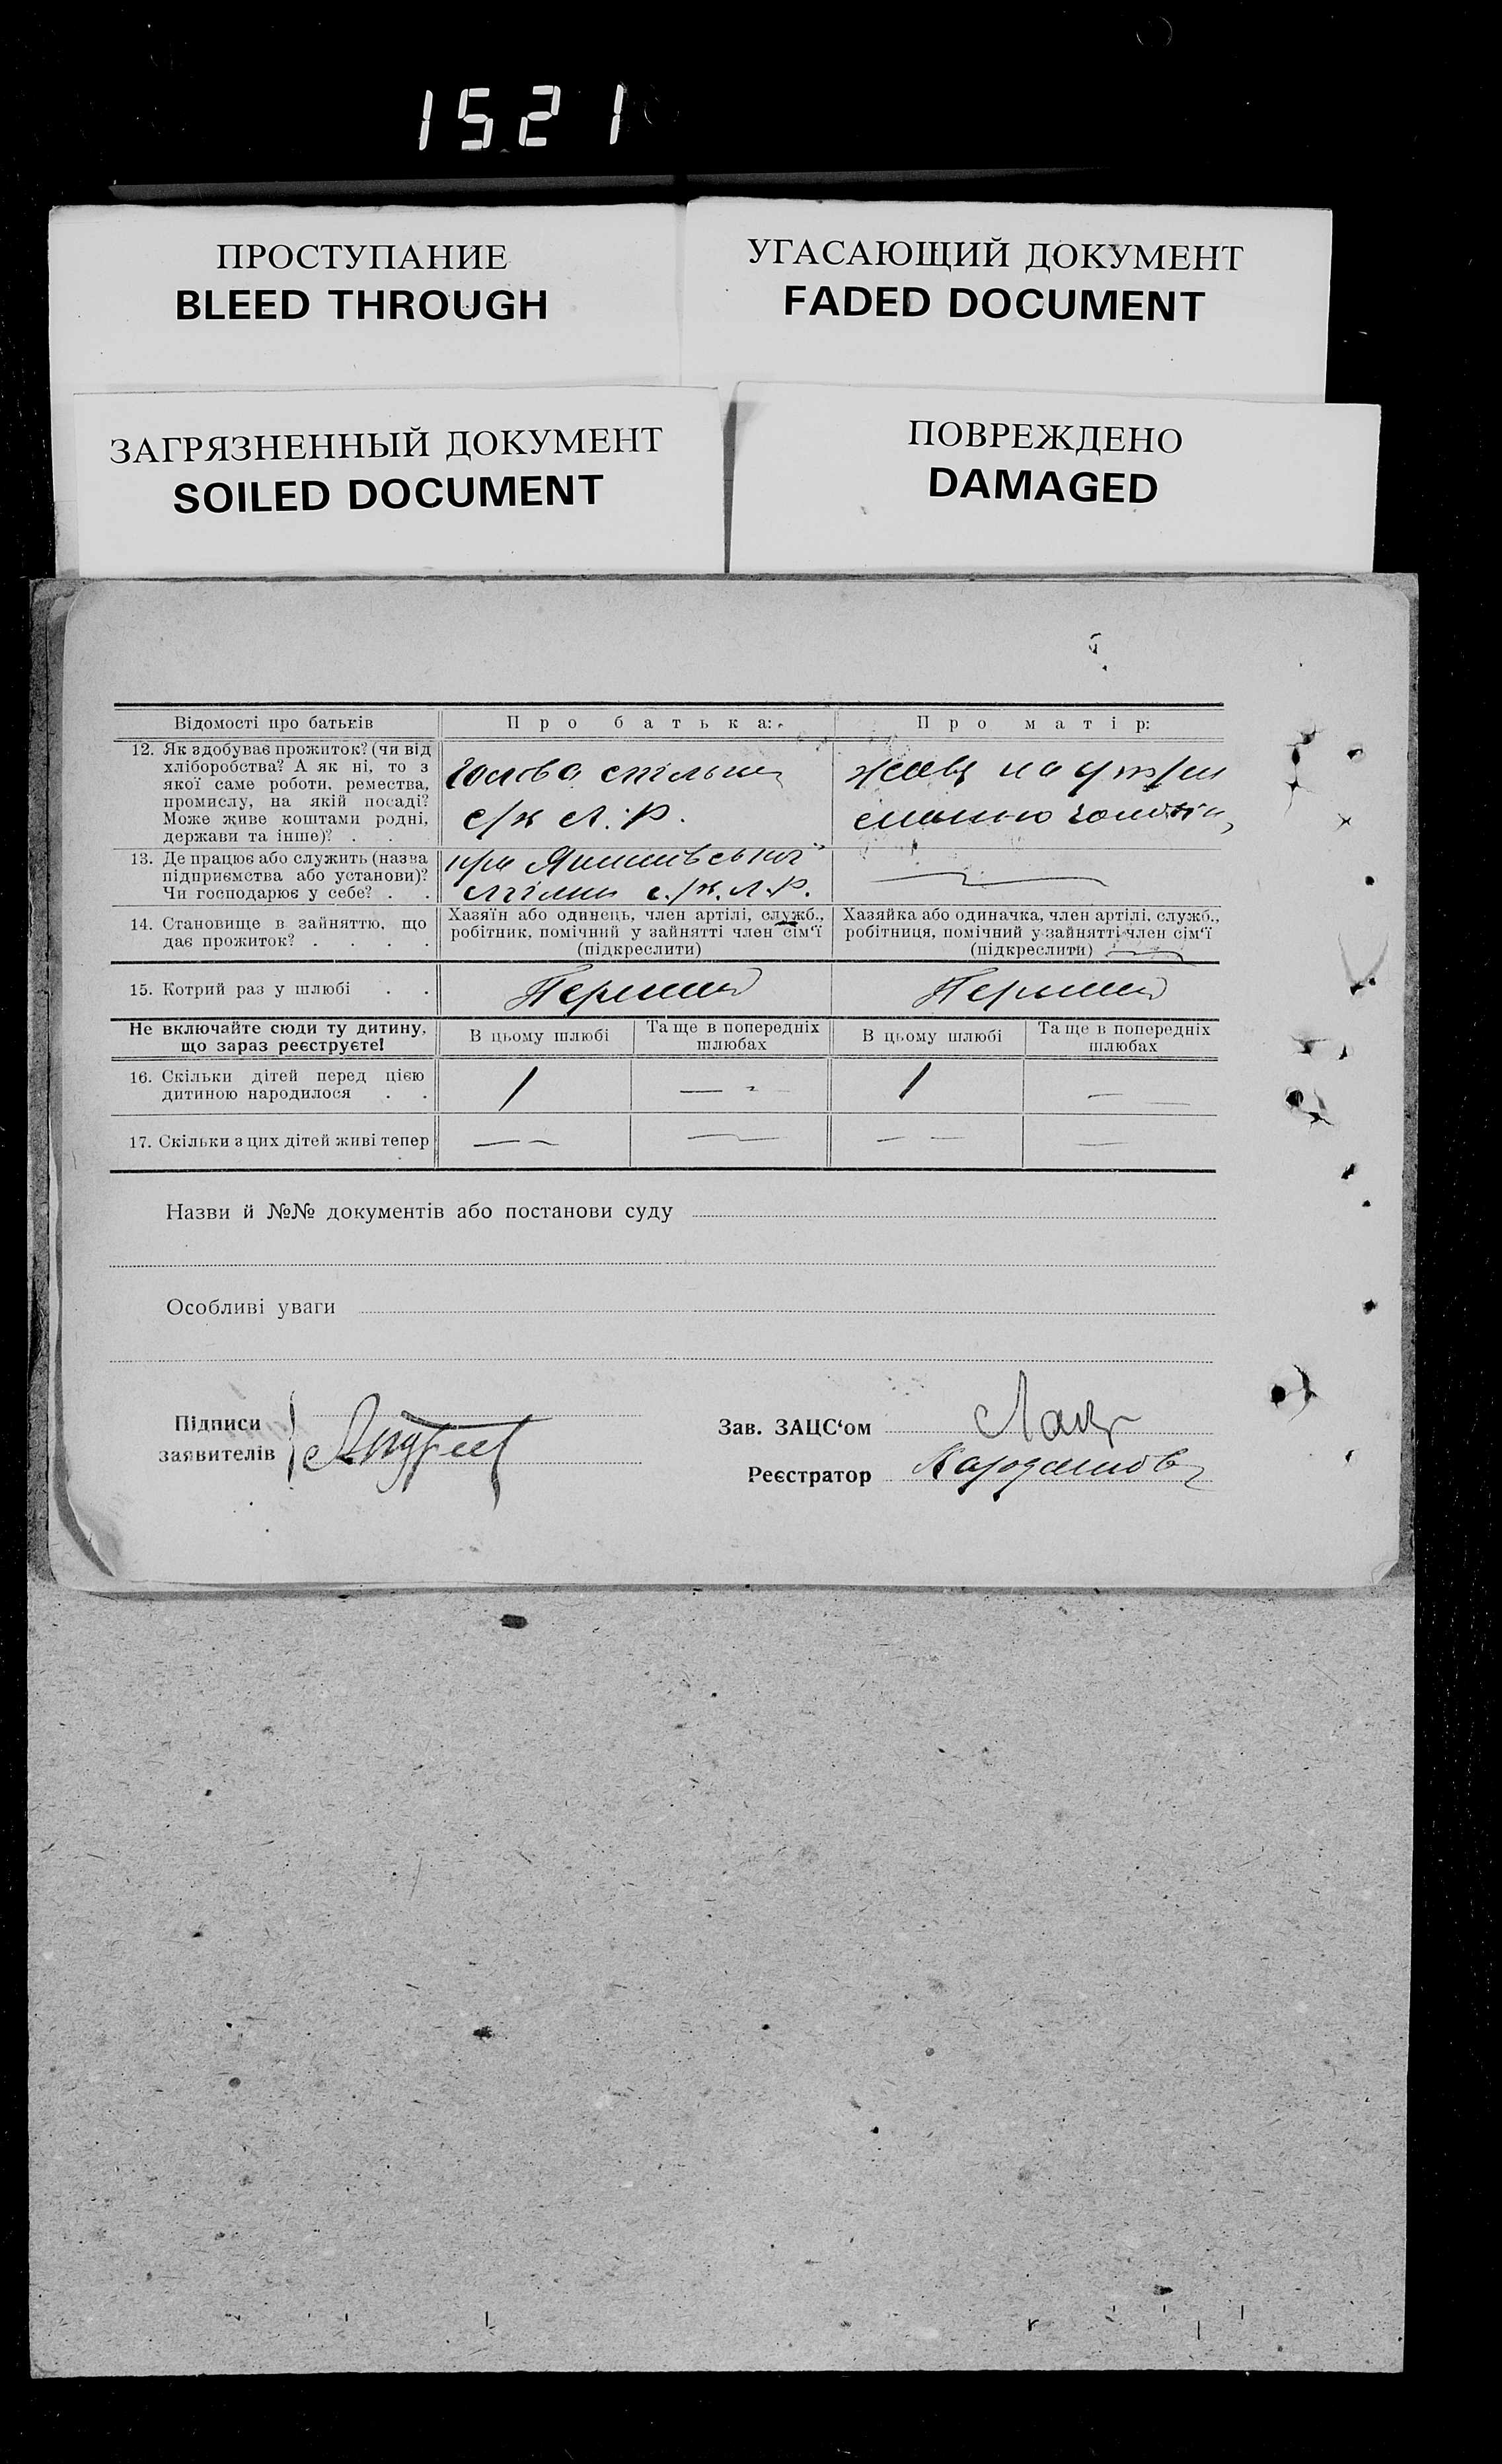 1521
ПРОСТУПАНИЕ
BLEED THROUGH
УГАСАЮЩИЙ ДОКУМЕНТ
FADED DOCUMENT
ЗАГРЯЗНЕННЫЙ ДОКУМЕНТ
SOILED DOCUMENT
ПОВРЕЖДЕНО
DAMAGED
Відомості про батьків
Про батька:
Про матір:
12. Як здобуває прожиток? (чи від
хліборобства? А як ні, то з
якої саме роботи, ремества,
промислу, на якій посаді?
Може живе коштами родні,
держави та інше)? . .
Голова спілки
с/ж Л.Р.
живе на
13. Де працює або служить (назва
підприємства або установи)?
Чи господарює у себе? . .
при
с./ж. Л.Р.
14. Становище в зайняттю, що
дає прожиток? . . . .
Хазяїн або одинець, член артілі, служб.,
робітник, помічний у зайнятті член сім'ї
(підкреслити)
Хазяйка або одиначка, член артілі, служб.,
робітниця, помічний у зайнятті член сім'ї
(підкреслити)
15. Котрий раз у шлюбі . .
Перший
Перший
Не включайте сюди ту дитину,
що зараз реєструєте!
В цьому шлюбі
Та ще в попередніх
шлюбах
В цьому шлюбі
Та ще в попередніх
шлюбах
16. Скільки дітей перед цією
дитиною народилося . .
1
— -
1
— —
17. Скільки з цих дітей живі тепер
— —
—
— —
—
Назви й №№ документів або постанови суду
Особливі уваги
Підписи
заявителів
Зав. ЗАЦС‘ом
Реєстратор